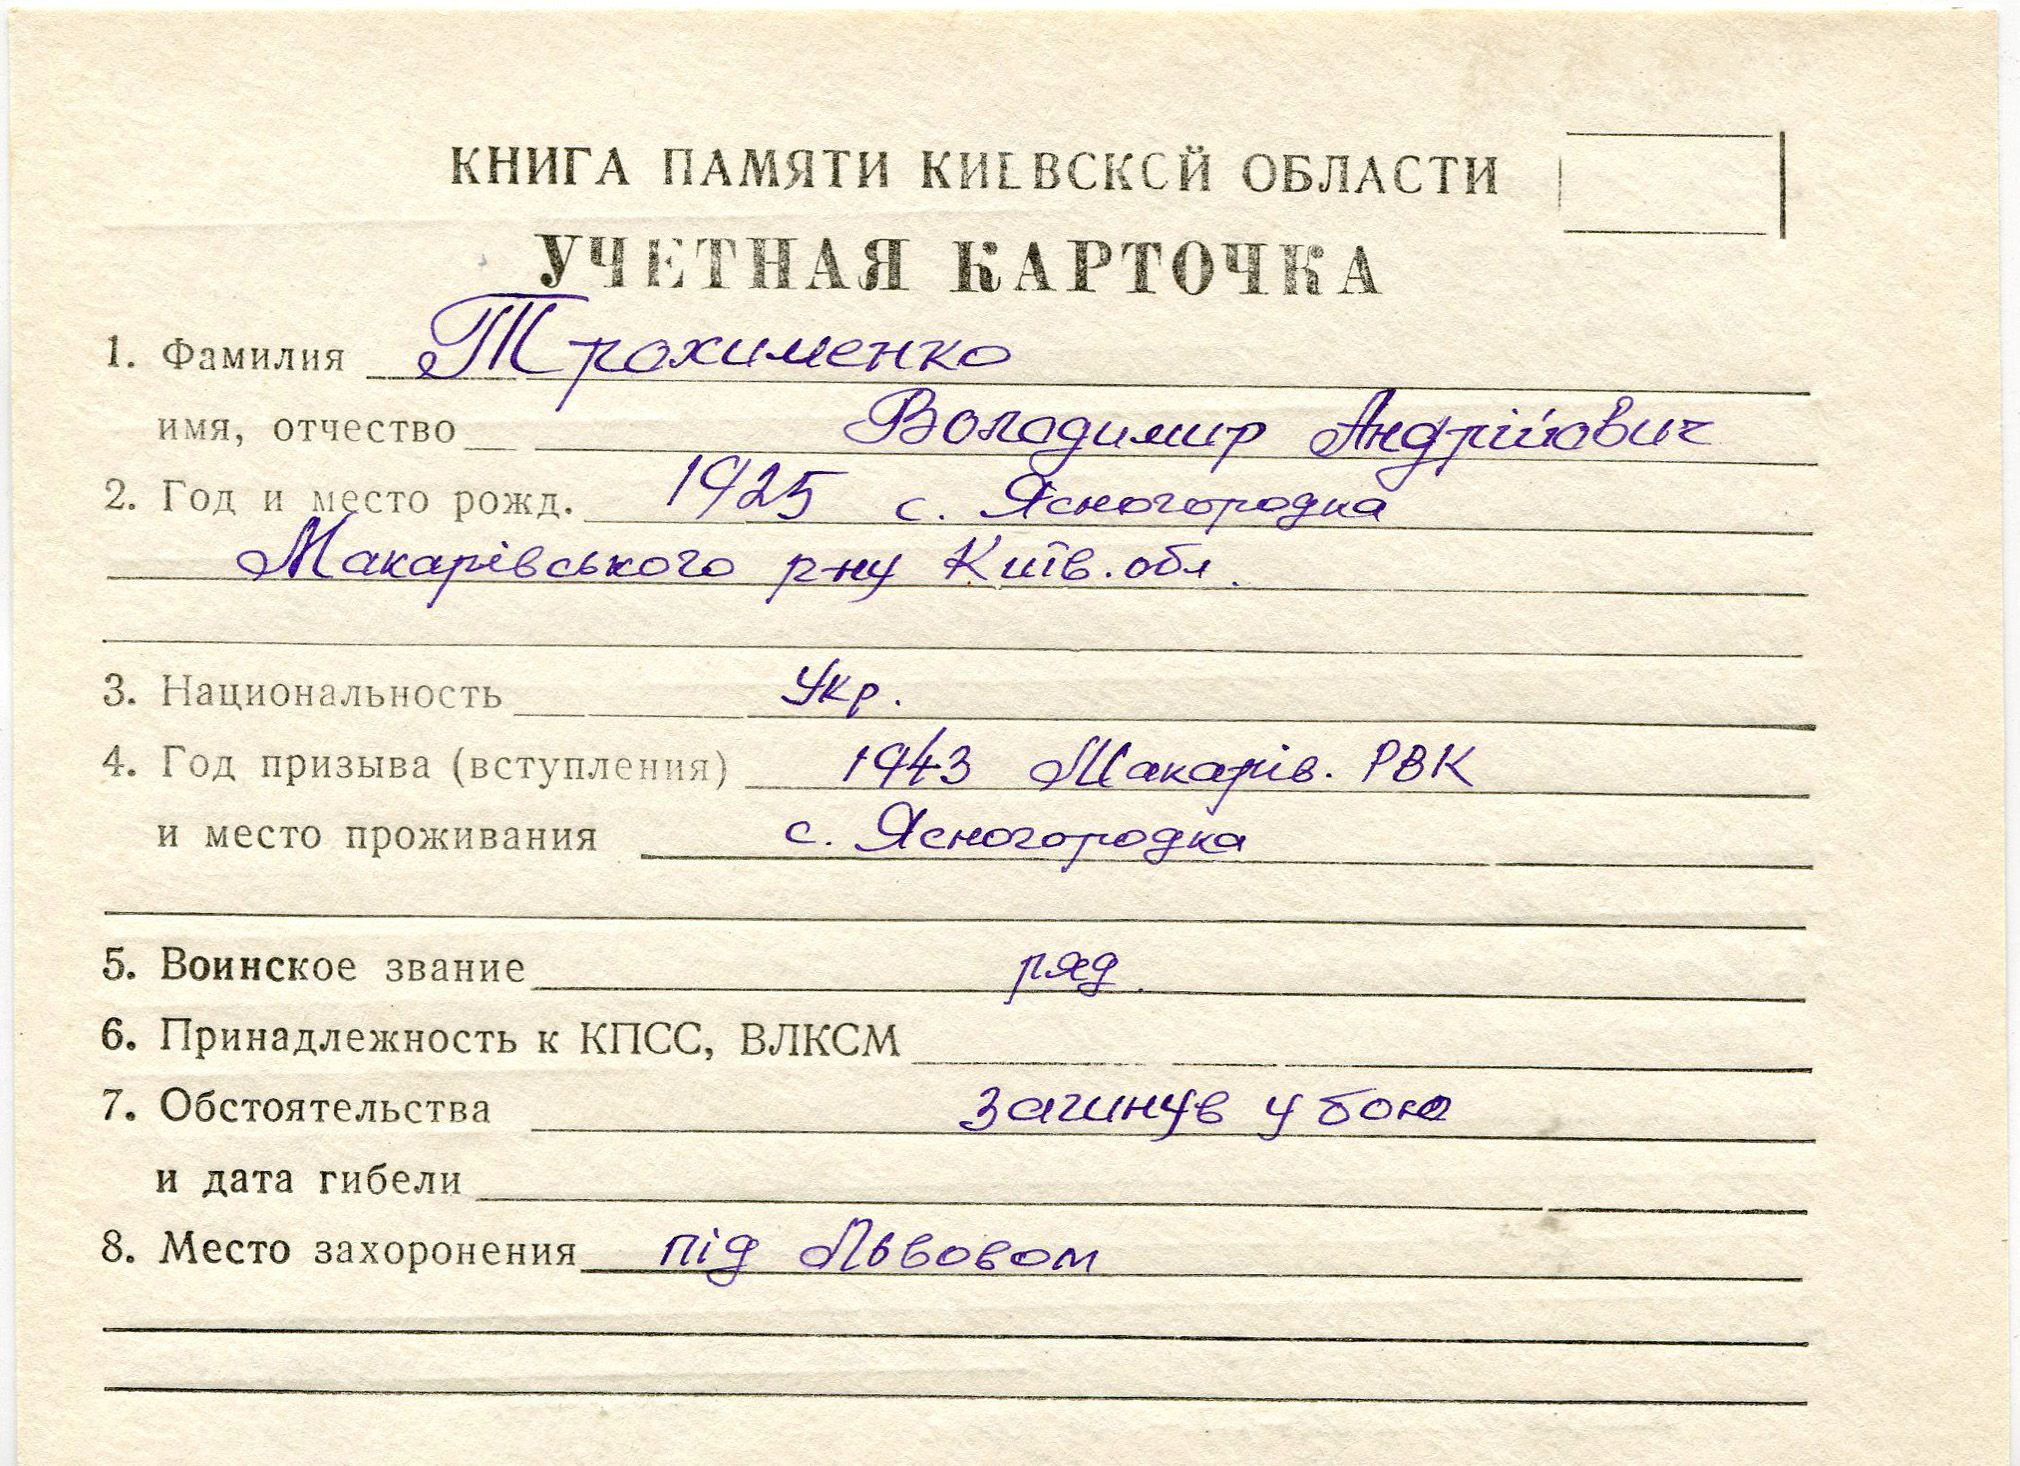 КНИГА ПАМЯТИ КИЕВСКОЙ ОБЛАСТИ
УЧЕТНАЯ КАРТОЧКА
1. Фамилия Трохименко
имя, отчество Володимир Андрійович
2. Год и место рожд. 1925 с. Ясногородка
Макарівського р-ну Київ. обл.
3. Национальность Укр.
4. Год призыва (вступления) 1943 Макарів. РВК
и место проживания с. Ясногородка
5. Воинское звание ряд.
6. Принадлежность к КПСС, ВЛКСМ
7. Обстоятельства загинув у бою
и дата гибели
8. Место захоронения під Львовом